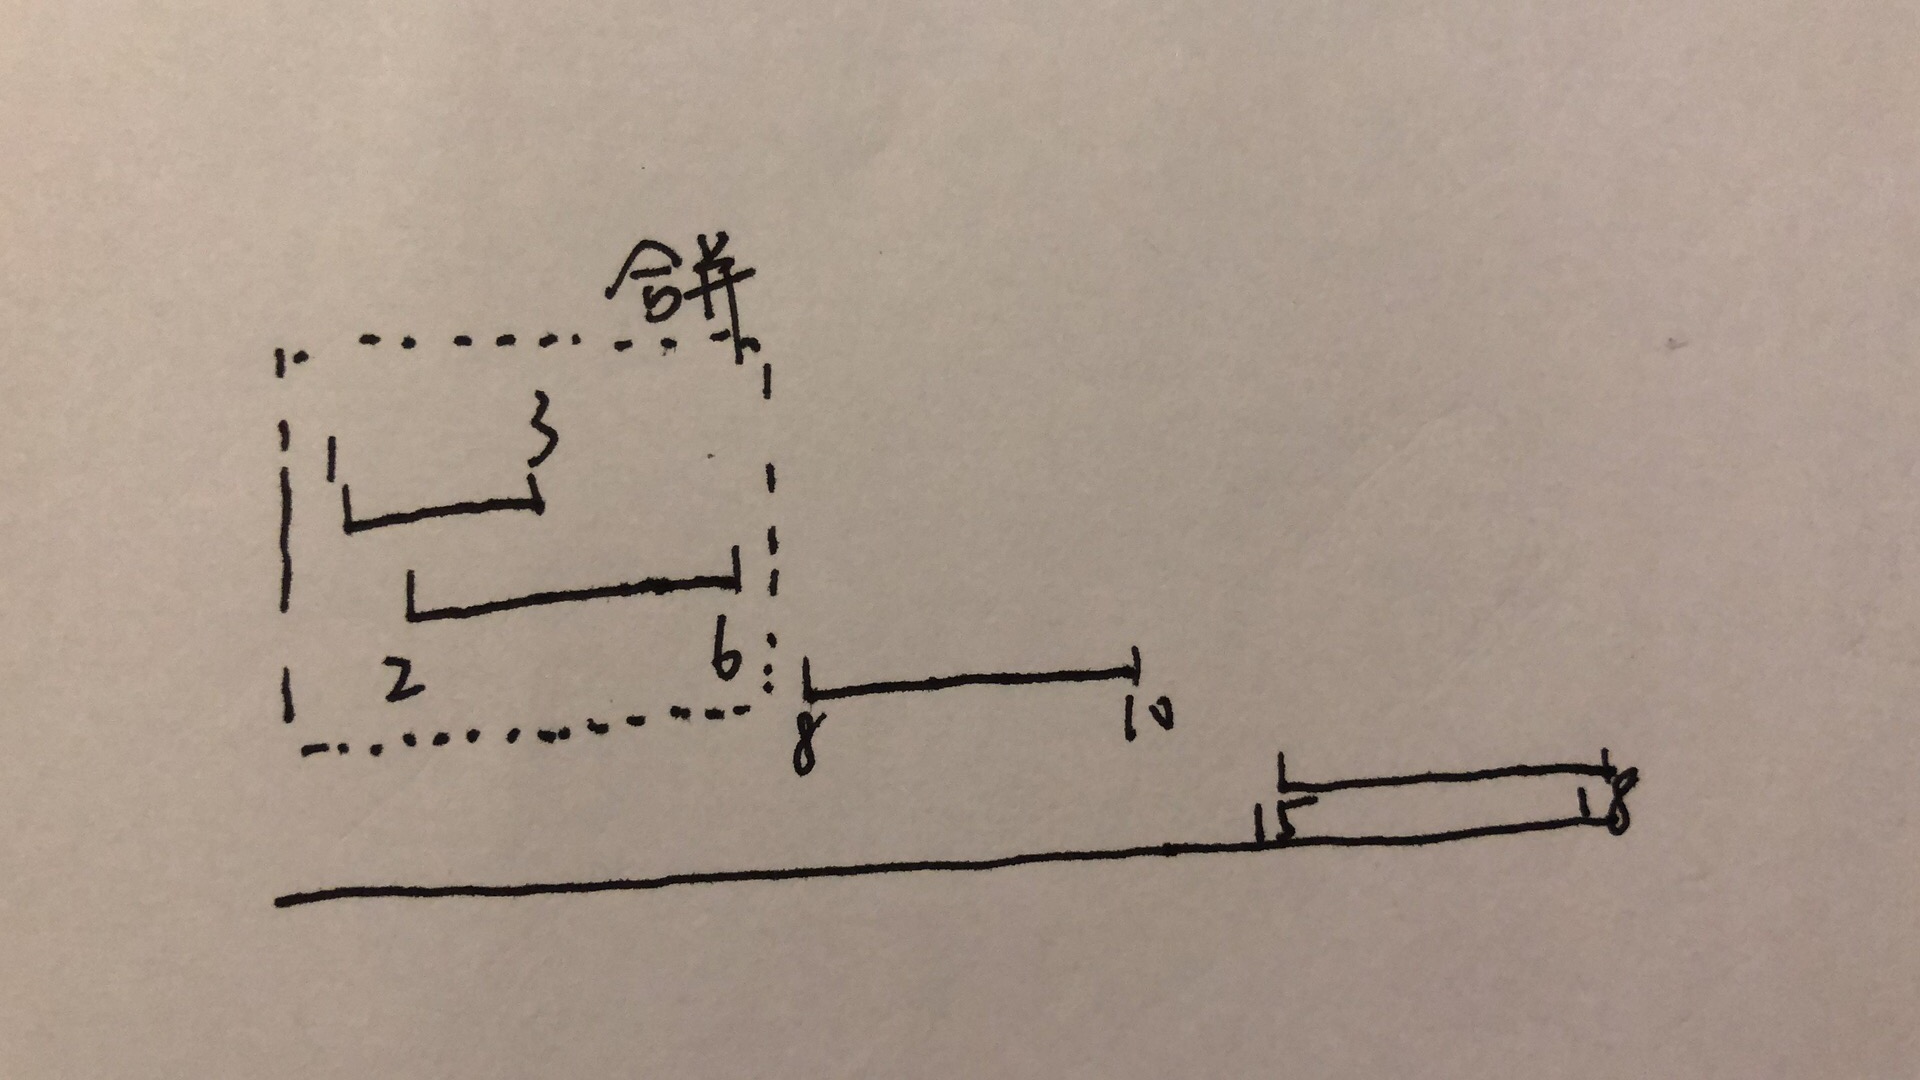 合并
1 3
2 6
8 10
15 18